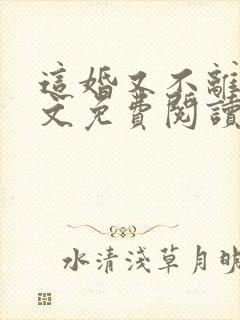 這婚又不離
文免費閱讀
水清淺草月明